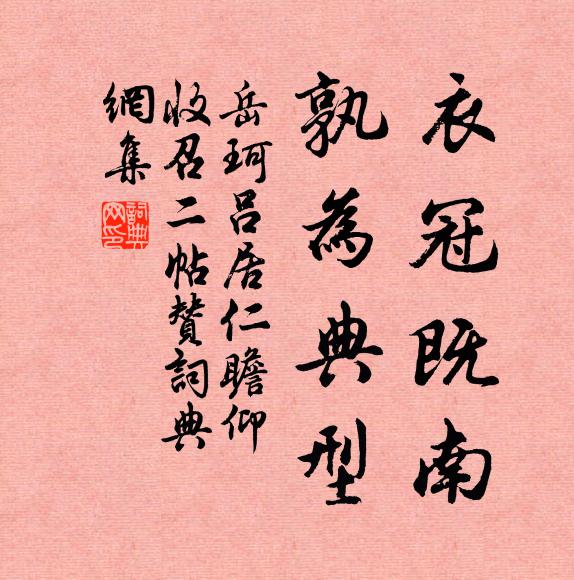 衣冠既南
孰為典型
岳珂吕居仁瞻仰
收召二帖贊詞典
網集
詞典網印